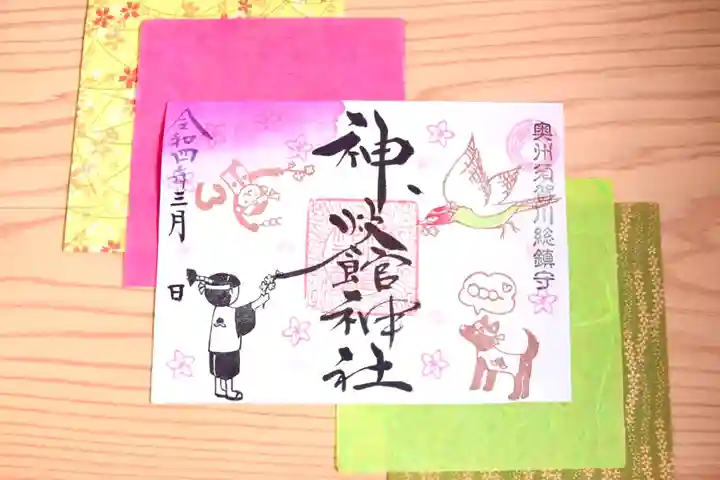 奥州須賀川総鎮守
神炊館神社
令和四年三月
日